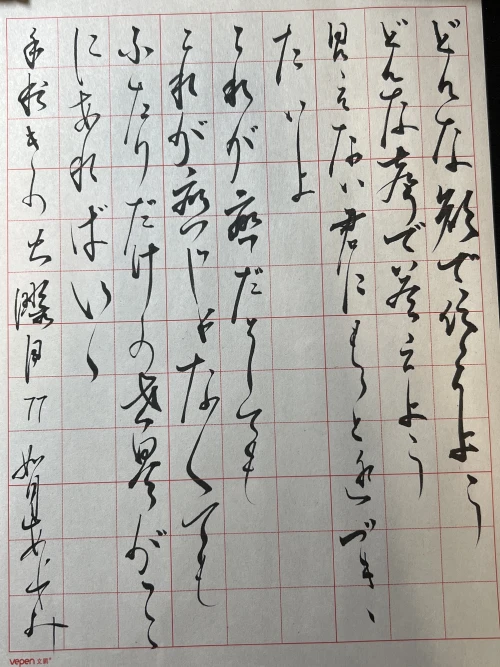 どんな顔で伝えよう
どんな声で答えよう
見えない君にもっと近づき、
たいよ
これが恋だとしても
これが恋じゃなくても
ふたりだけの世界がここ
にあればいい
月77 如月
vepen 文鹏